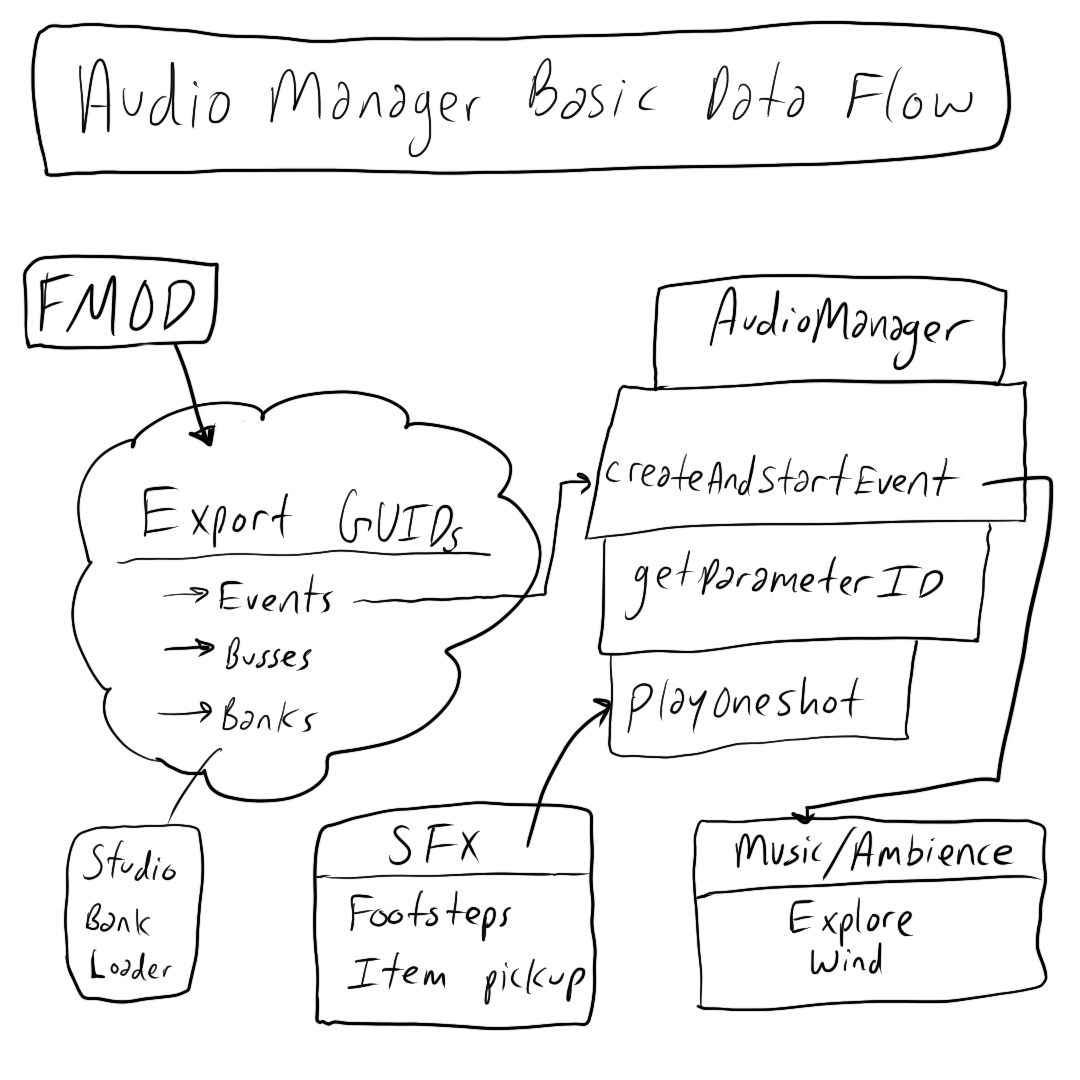 Audio Manager Basic Data Flow
FMOD
Export GUIDs
→ Events
→ Busses
→ Banks
Studio
Bank
Loader
AudioManager
createAndStartEvent
getParameterID
PlayOneshot
SFX
Footsteps
Item pickup
Music/Ambience
Explore
Wind